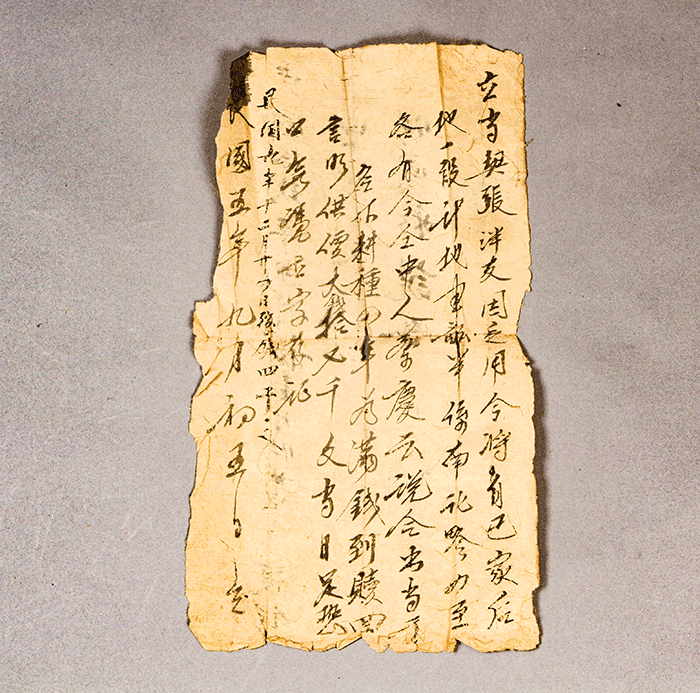 立当契張泮友因乏用今將自己家后
地一段計地車畝半係南北畛四至
各有今仝中人蔡慶云説合出当
名下耕種四年為滿錢到贖回
言明供價大錢拾又千文当日足
口無憑字存証
民國年十二月廿日錢四千文
民國五年九月初五日立